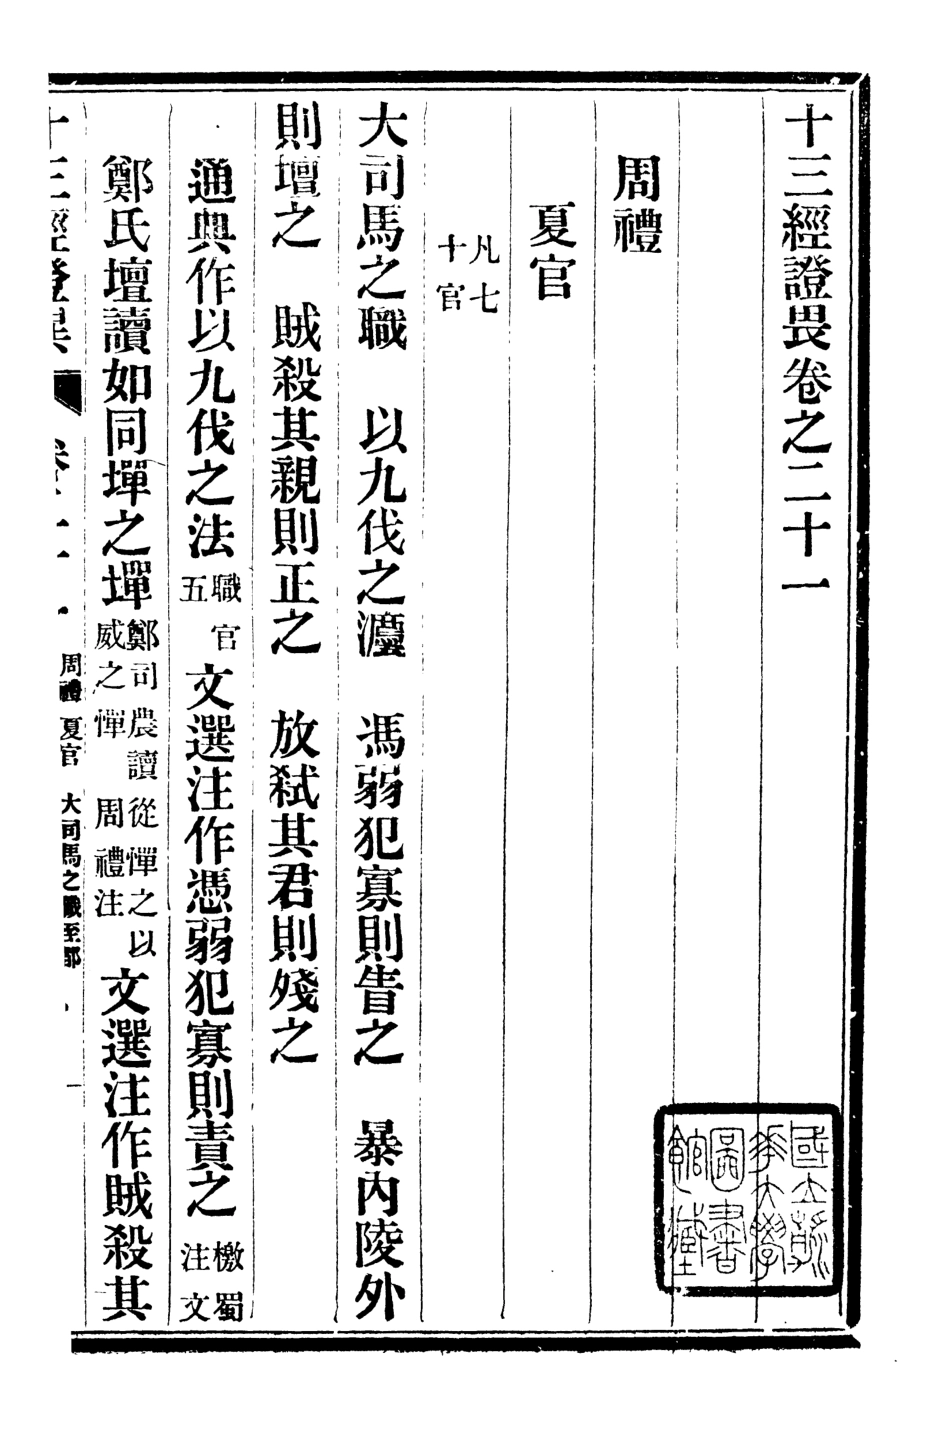 十三經證異卷之二十一
周禮
夏官
凡七十官
大司馬之職　以九伐之灋　馮弱犯寡則眚之　暴內陵外
則壇之　賊殺其親則正之　放弒其君則殘之
通典作以九伐之法職官五　文選注作憑弱犯寡則責之檄蜀文注
鄭氏壇讀如同墠之墠鄭司農讀從憚之以威之憚　周禮注　文選注作賊殺其
十三經證異　卷二十一　周禮　夏官　大司馬之職至都　一
國立清華大學圖書館藏